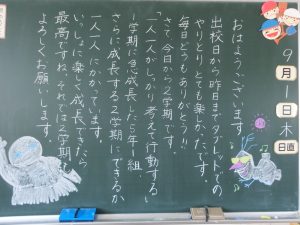 9月1日木
日直
おはようございます。
出校日から昨日までタブレットでの
やりとりとても楽しかったです。
毎日どうもありがとう!!
さて、今日から2学期です。
「一人一人がしっかり考えて行動する」
1学期に急成長した5年1組。
さらに成長する2学期にできるか
一人一人にかかっています。
いっしょに楽しく成長できたら
最高ですね。それでは2学期も
よろしくお願いします。